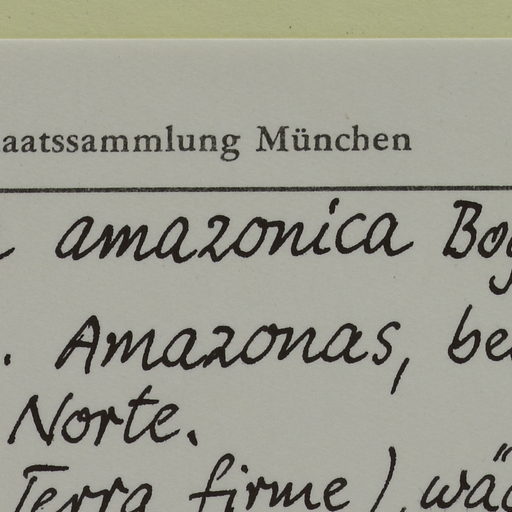 aatssammlung München
amazonica Bog
. Amazonas, be
Norte.
Terra firme), wäc